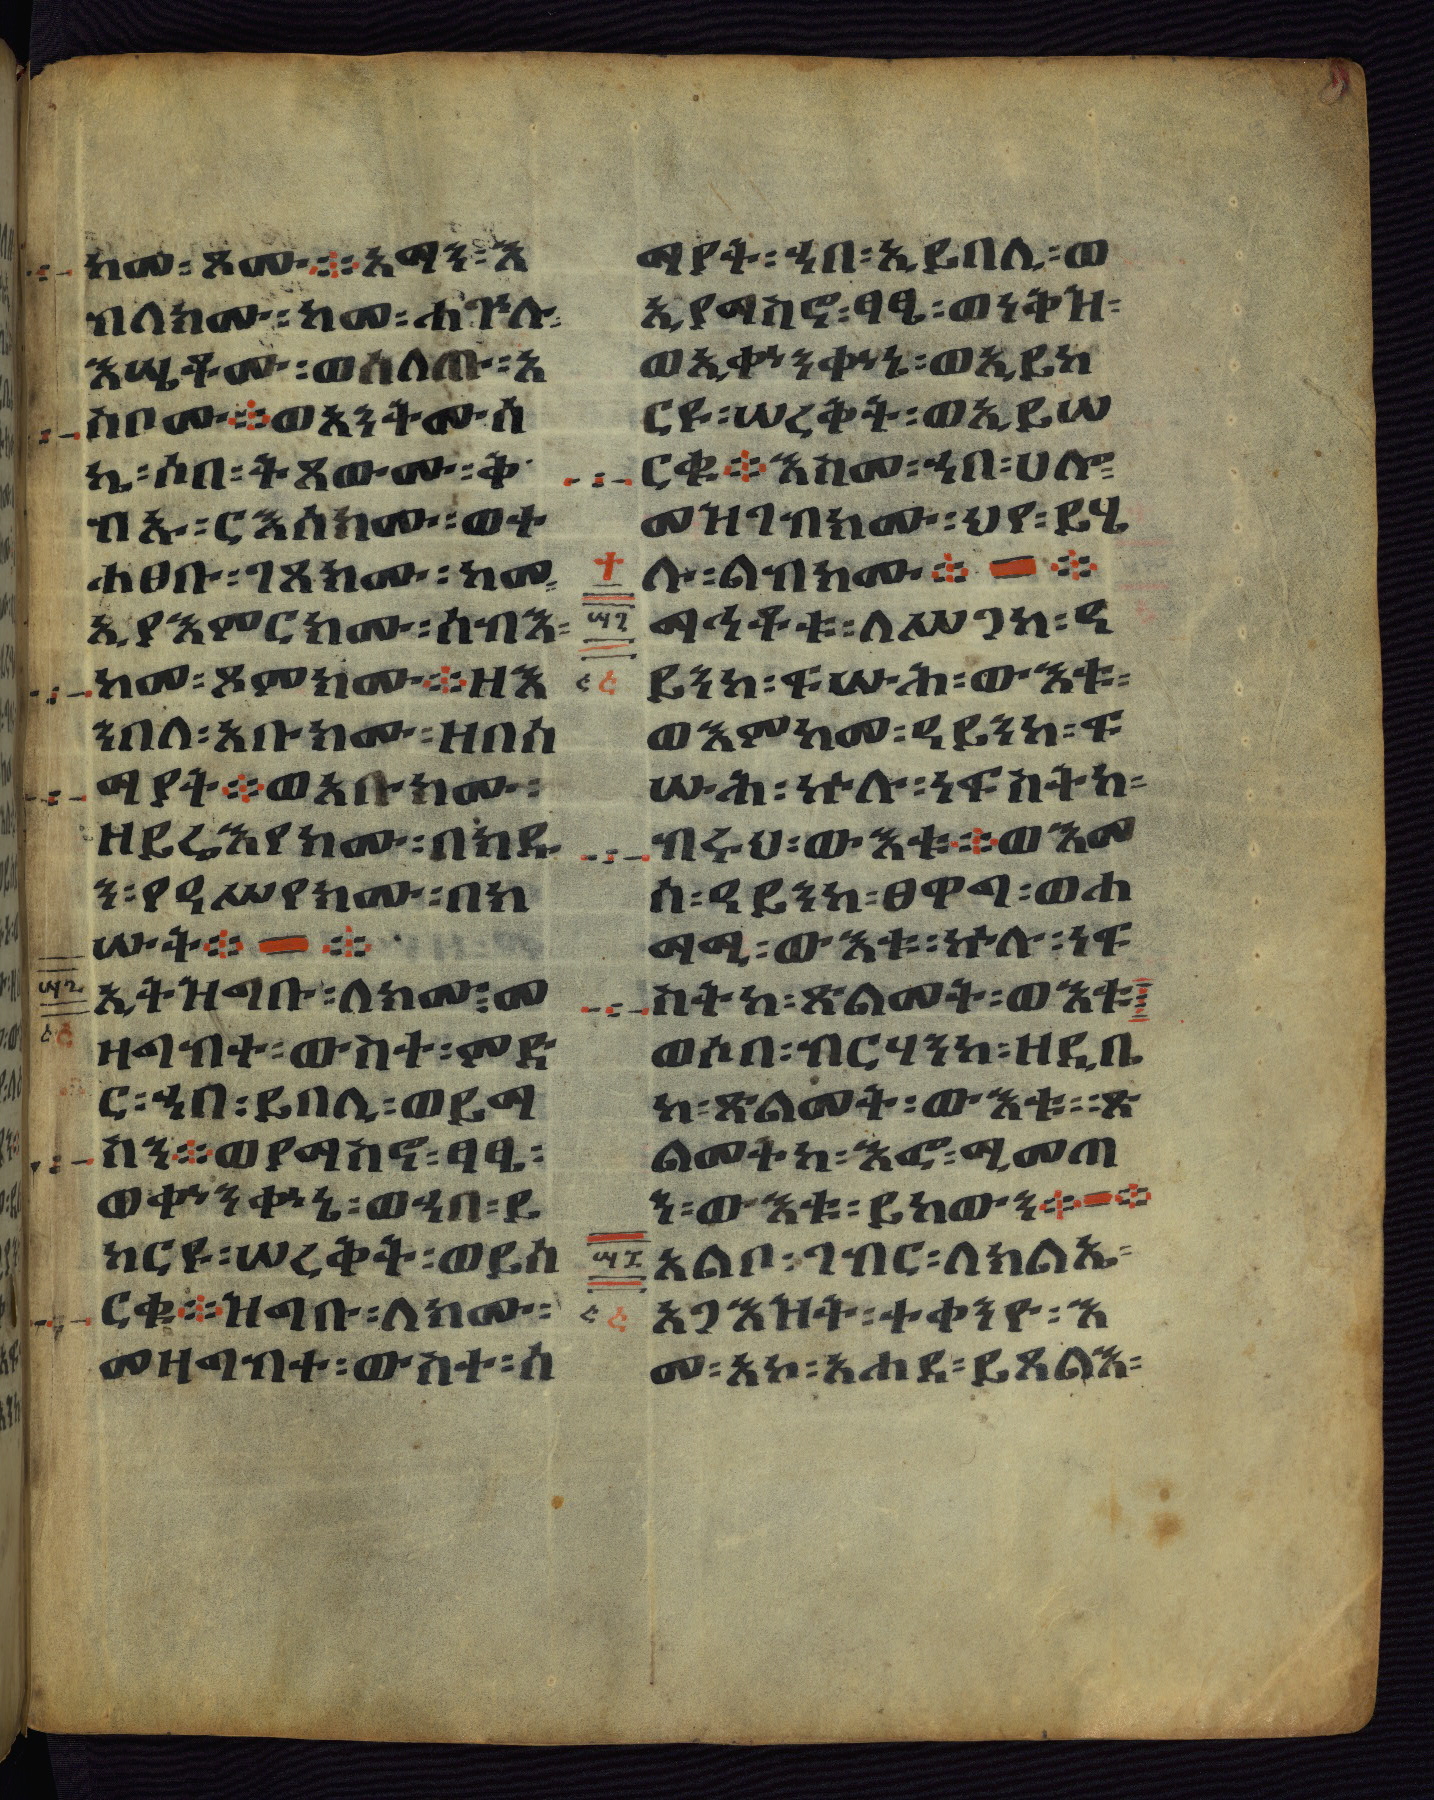 ከመ፡ጾሙ፨አማን፡እ
ብለክሙ፡ከመ፡ሐጐሉ፡
እሤቶሙ፡ወሰለጡ፡እ
ስቦሙ፨ወአንትሙሰ
ኪ፡ሶበ፡ትጸውሙ፡ቅ
ብኡ፡ርእሰክሙ፡ወተ
ሐፀቡ፡ገጸክሙ፡ከመ፡
ኢያእምርክሙ፡ሰብእ፡
ከመ፡ጾምክሙ፨ዘእ
ንበለ፡አቡክሙ፡ዘበሰ
ማያት፨ወአቡክሙ፡
ዘይሬእየክሙ፡በክዱ
ን፡የዓሥየክሙ፡በክ
ሡት፨ ፨
ኢትዝግቡ፡ለክሙ፡መ
ዛግብተ፡ውስተ፡ምድ
ር፡ኀበ፡ይበሊ፡ወይማ
ስን፨ወያማስኖ፡ፃፄ፡
ወቍንቍኔ፡ወኀበ፡ይ
ከርዩ፡ሠረቅት፡ወይሰ
ርቁ፨ዝግቡ፡ለክሙ፡
መዛግብተ፡ውስተ፡ሰ
ማያት፡ኀበ፡ኢይበሊ፡ወ
ኢያማስኖ፡ፃፄ፡ወንቅዝ፡
ወኢቍንቍኔ፡ወኢይከ
ርዩ፡ሠረቅት፡ወኢይሠ
ርቁ፨እስመ፡ኀበ፡ሀሎ፡
መዝገብክሙ፡ህየ፡ይሄ
ሉ፡ልብክሙ፨ ፨
ማኅቶቱ፡ለሥጋከ፡ዓ
ይንከ፡ፍሡሕ፡ውእቱ፡
ወእምከመ፡ዓይንከ፡ፍ
ሡሕ፡ኵሉ፡ነፍስትከ፡
ብሩህ፡ውእቱ፨ወእመ
ሰ፡ዓይንከ፡ፀዋግ፡ወሐ
ማሚ፡ውእቱ፡ኵሉ፡ነፍ
ስትከ፡ጽልመት፡ውእቱ፡
ወሶበ፡ብርሃንከ፡ዘዲቤ
ከ፡ጽልመት፡ውእቱ፡ጽ
ልመትከ፡እፎ፡ሚመጠ
ን፡ውእቱ፡ይከውን፨፨
አልቦ፡ገብር፡ለክልኤ፡
አጋእዝት፡ተቀንዮ፡እ
መ፡አኮ፡አሐደ፡ይጸልእ፡